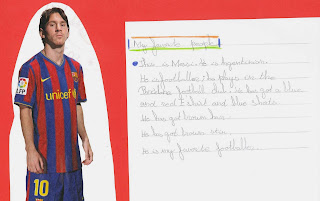 unicef
LFP
10
My favorite people
This is Messi. He is
He is footballer. He plays in the
football club. He has got a blue
and red t-shirt and blue shorts.
He has got brown hair.
He has got brown
He is my favorite footballer.